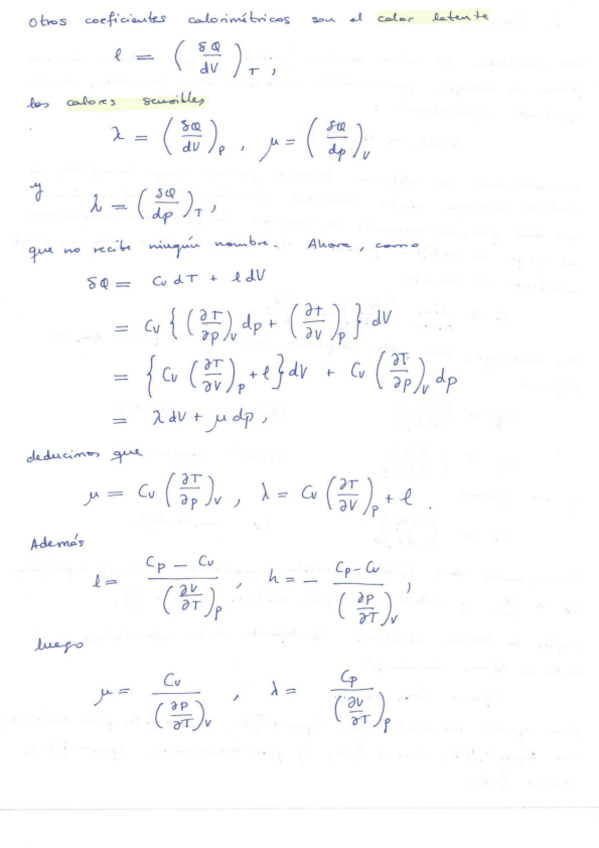 Otros coeficientes calorimétricos son el calor latente
l = (δQ/dV)_T ,
los calores sensibles
λ = (δQ/dV)_p , μ = (δQ/dp)_V
y
λ = (δQ/dp)_T ,
que no recibe ningún nombre. Ahora, como
δQ = Cv dT + l dV
= Cv { (∂T/∂p)_V dp + (∂T/∂V)_p } dV
= { Cv (∂T/∂V)_p + l } dV + Cv (∂T/∂p)_V dp
= λ dV + μ dp ,
deducimos que
μ = Cv (∂T/∂p)_V , λ = Cv (∂T/∂V)_p + l .
Además
l = (Cp - Cv)/(∂V/∂T)_p , h = - (Cp - Cv)/(∂p/∂T)_V ,
luego
μ = Cv/(∂p/∂T)_V , λ = Cp/(∂V/∂T)_p